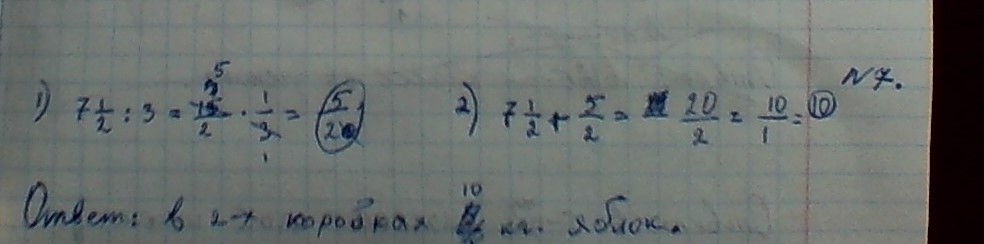 № 7.
1) 7 1/2 : 3 = 15/2 · 1/3 = 5/2 2) 7 1/2 + 5/2 = 20/2 = 10/1 = 10
Ответ: в 2-х коробках 10 кг. яблок.